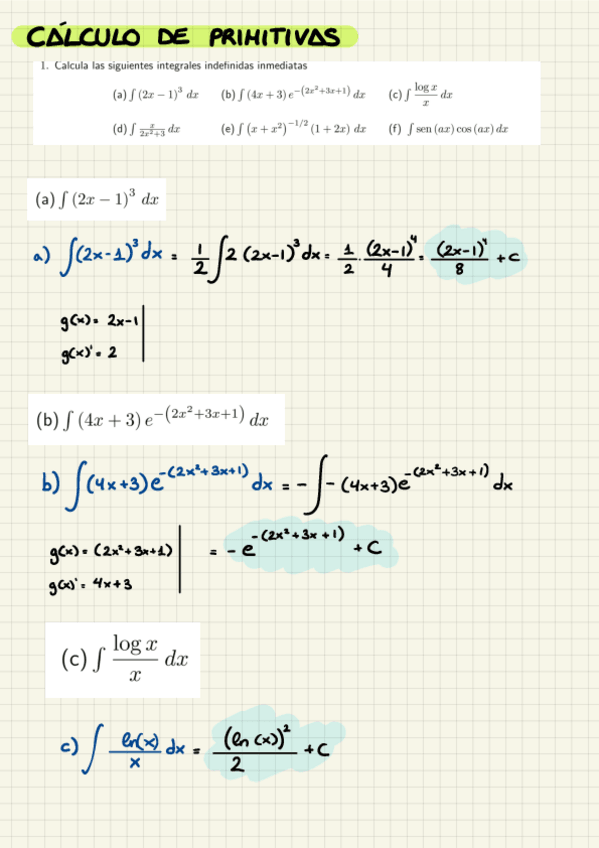 CÁLCULO DE PRIMITIVAS
1. Calcula las siguientes integrales indefinidas inmediatas
(a) ∫ (2x − 1)³ dx (b) ∫ (4x + 3) e^−(2x²+3x+1) dx (c) ∫ log x / x dx
(d) ∫ x / 2x²+3 dx (e) ∫ (x + x²)^−1/2 (1 + 2x) dx (f) ∫ sen (ax) cos (ax) dx
(a) ∫ (2x − 1)³ dx
a) ∫(2x-1)³dx = 1/2 ∫2 (2x-1)³dx = 1/2 · (2x-1)⁴/4 = (2x-1)⁴/8 + C
g(x) = 2x-1
g(x)' = 2
(b) ∫ (4x + 3) e^−(2x²+3x+1) dx
b) ∫(4x+3)e^-(2x²+3x+1) dx = - ∫ - (4x+3)e^-(2x²+3x+1) dx
g(x) = (2x²+3x+1) = - e^-(2x²+3x+1) + C
g(x)' = 4x+3
(c) ∫ log x / x dx
c) ∫ ln(x)/x dx = (ln(x))²/2 + C